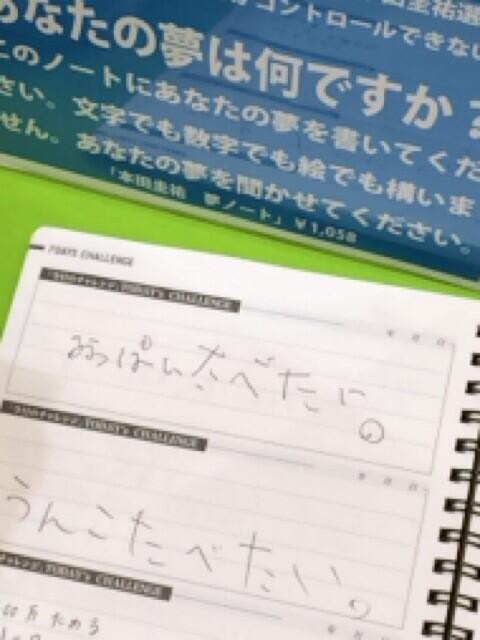 コントロールできない
あなたの夢は何ですか？
このノートにあなたの夢を書いてくだ
さい。文字でも数字でも絵でも構いま
せん。あなたの夢を聞かせてください。
「本田圭祐 夢ノート」￥1,058
7DAYS CHALLENGE
今日のチャレンジ/TODAY's CHALLENGE
年 月 日
おっぱいたべたい。
今日のチャレンジ/TODAY's CHALLENGE
年 月 日
うんこたべたい。
チャレンジ/TODAY's CHALLENGE
ためる